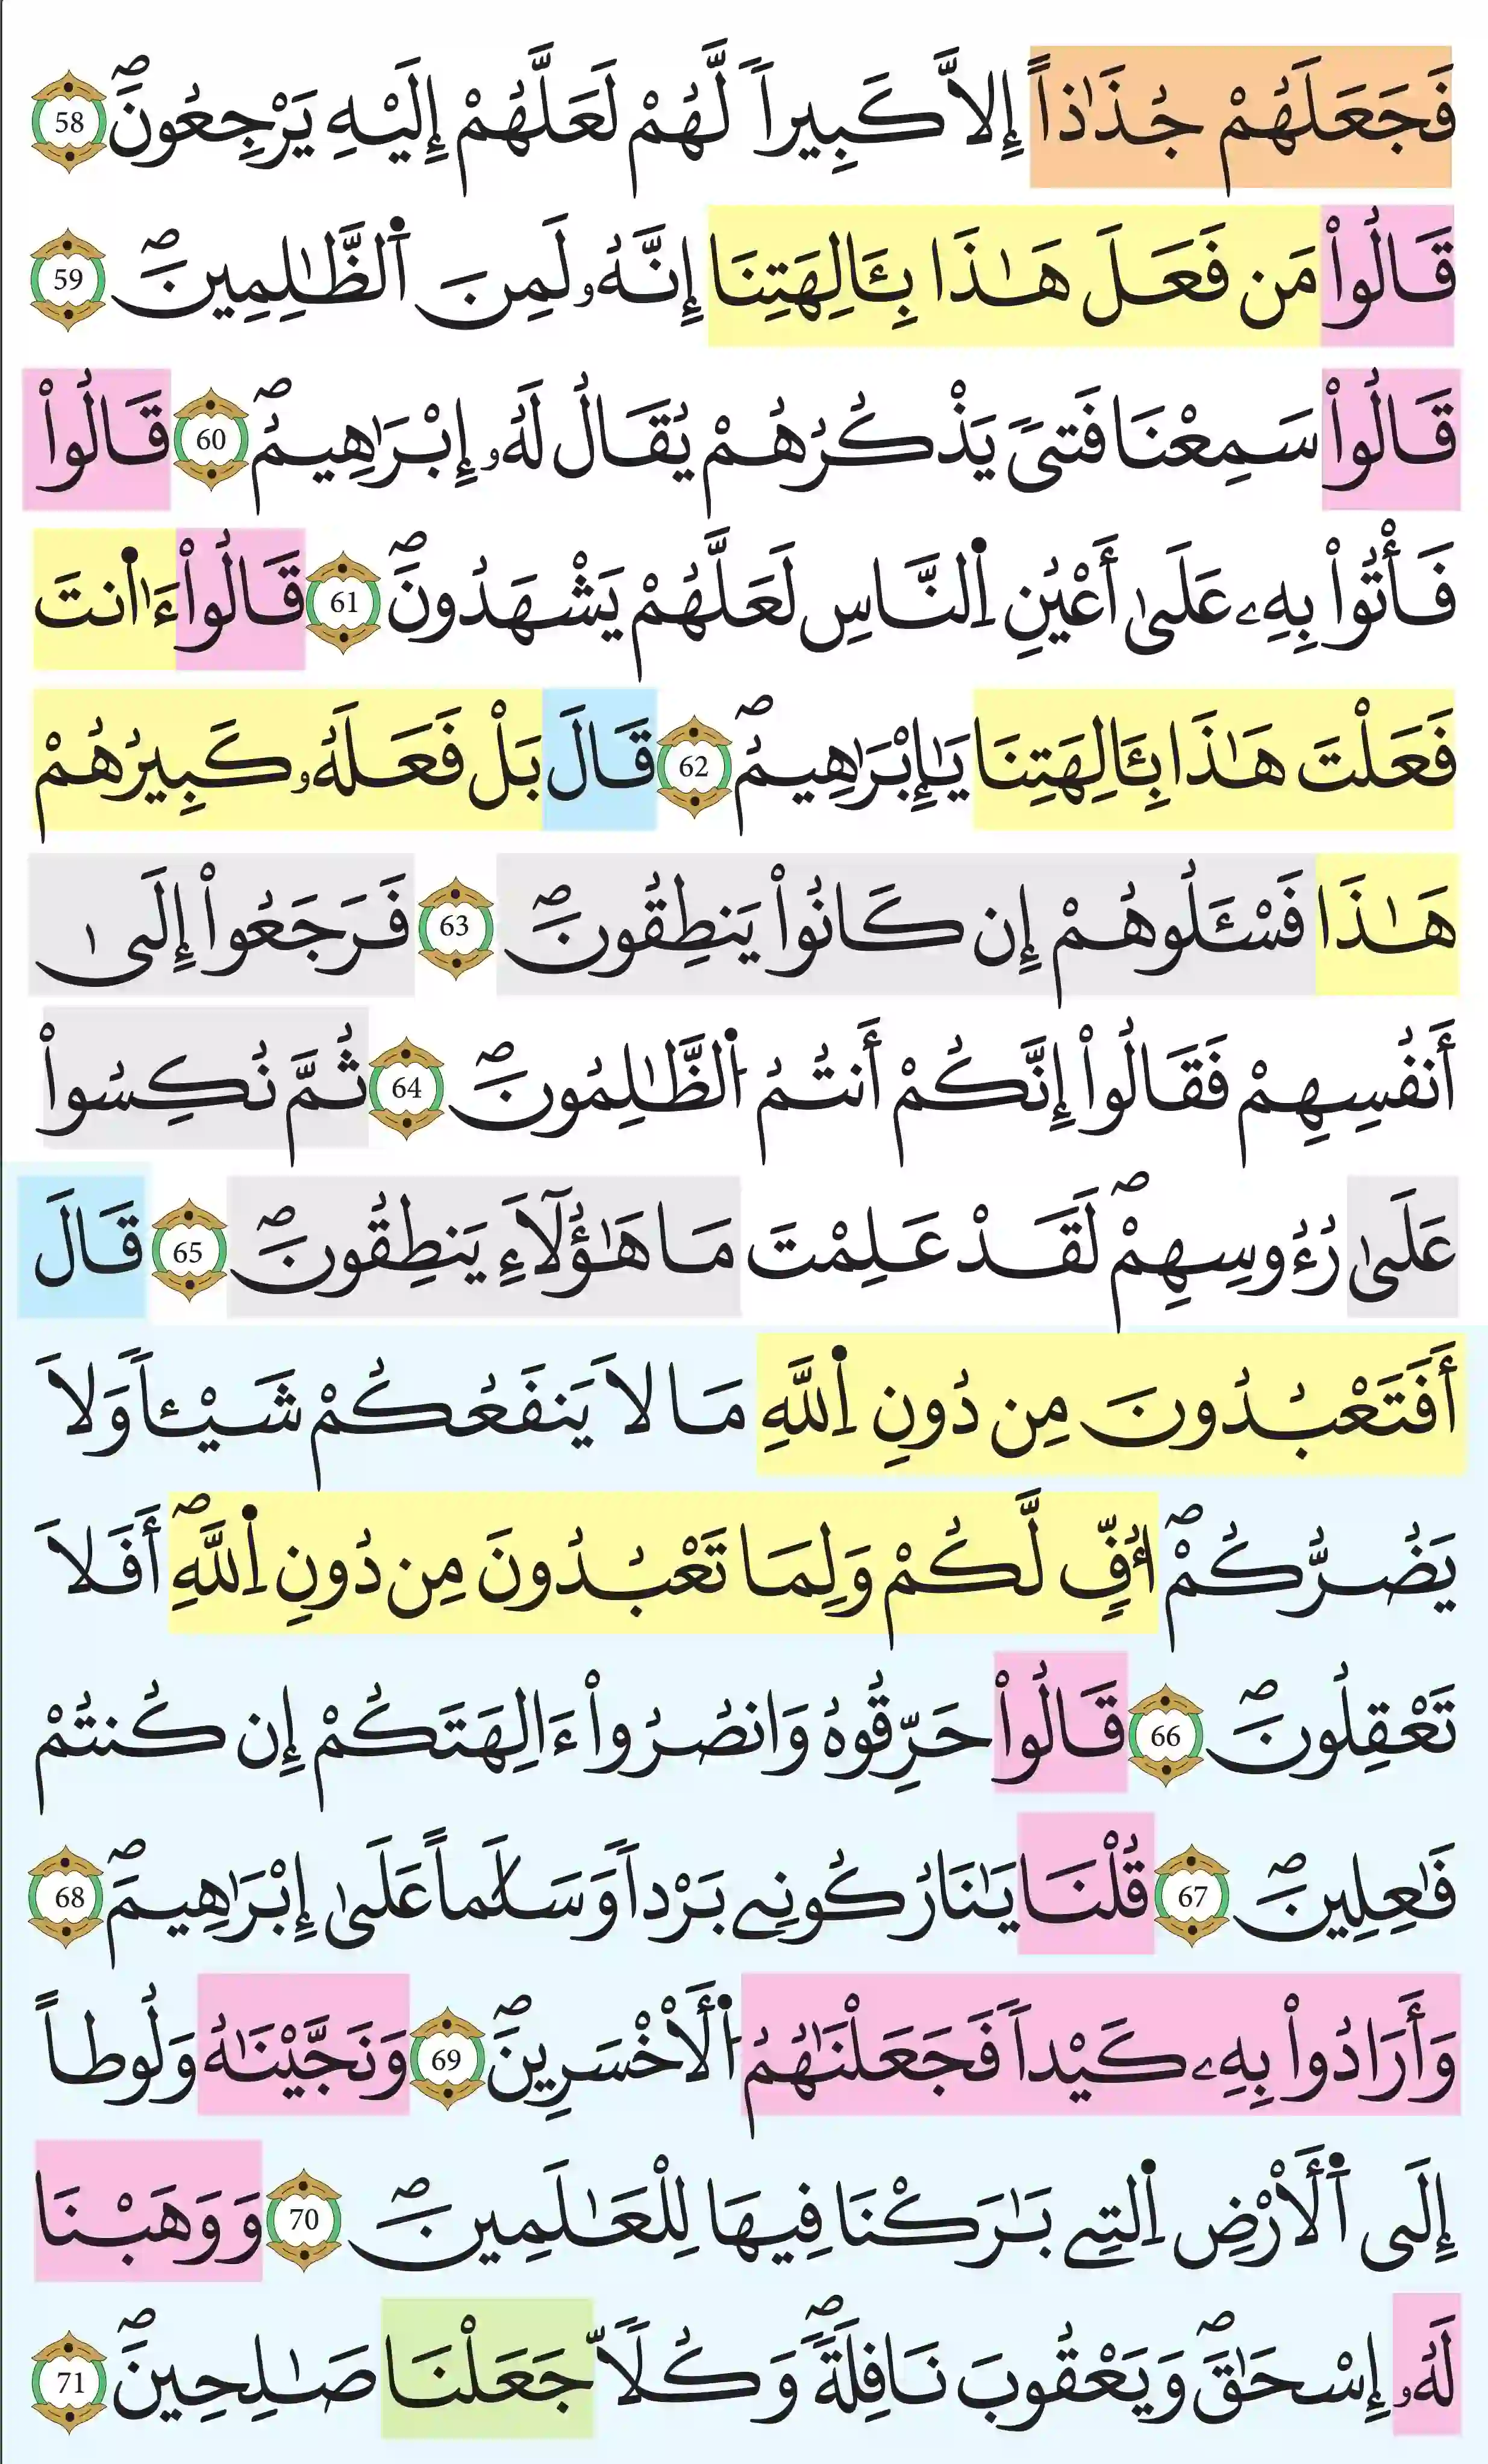 فَجَعَلَهُمْ جُذَٰذاً إِلاَّ كَبِيراࣰ لَّهُمْ لَعَلَّهُمْ إِلَيْهِ يَرْجِعُونَۖ 58
قَالُواْ مَن فَعَلَ هَٰذَا بِـَٔالِهَتِنَا إِنَّهُۥ لَمِنَ اَ۬لظَّٰلِمِينَۖ 59
قَالُواْ سَمِعْنَا فَتيࣰ يَذْكُرُهُمْ يُقَالُ لَهُۥ إِبْرَٰهِيمُۖ 60 قَالُواْ
فَأْتُواْ بِهِۦ عَلَىٰ أَعْيُنِ اِ۬لنَّاسِ لَعَلَّهُمْ يَشْهَدُونَۖ 61 قَالُواْ ءَٰا۬نتَ
فَعَلْتَ هَٰذَا بِـَٔالِهَتِنَا يَٰإِبْرَٰهِيمُۖ 62 قَالَ بَلْ فَعَلَهُۥ كَبِيرُهُمْ
هَٰذَا فَسْـَٔلُوهُمْ إِن كَانُواْ يَنطِقُونَۖ 63 فَرَجَعُواْ إِلَىٰ
أَنفُسِهِمْ فَقَالُواْ إِنَّكُمْ أَنتُمُ اُ۬لظَّٰلِمُونَۖ 64 ثُمَّ نُكِسُواْ
عَلَىٰ رُءُوسِهِمْۖ لَقَدْ عَلِمْتَ مَا هَٰؤُلَآءِ يَنطِقُونَۖ 65 قَالَ
أَفَتَعْبُدُونَ مِن دُونِ اِ۬للَّهِ مَا لاَ يَنفَعُكُمْ شَيْـٔاࣰ وَلاَ
يَضُرُّكُمْۖ أُفࣲّ لَّكُمْ وَلِمَا تَعْبُدُونَ مِن دُونِ اِ۬للَّهِۖ أَفَلاَ
تَعْقِلُونَۖ 66 قَالُواْ حَرِّقُوهُ وَانصُرُواْ ءَالِهَتَكُمْ إِن كُنتُمْ
فَٰعِلِينَۖ 67 قُلْنَا يَٰنَارُ كُونِے بَرْداࣰ وَسَلَٰماً عَلَىٰ إِبْرَٰهِيمَۖ 68
وَأَرَادُواْ بِهِۦ كَيْداࣰ فَجَعَلْنَٰهُمُ اُ۬لَأَخْسَرِينَۖ 69 وَنَجَّيْنَٰهُ وَلُوطاً
إِلَى اَ۬لَأَرْضِ اِ۬لتِے بَٰرَكْنَا فِيهَا لِلْعَٰلَمِينَۖ 70 وَوَهَبْنَا
لَهُۥ إِسْحَٰقَۖ وَيَعْقُوبَ نَافِلَةࣰۖ وَكُلّاࣰ جَعَلْنَا صَٰلِحِينَۖ 71